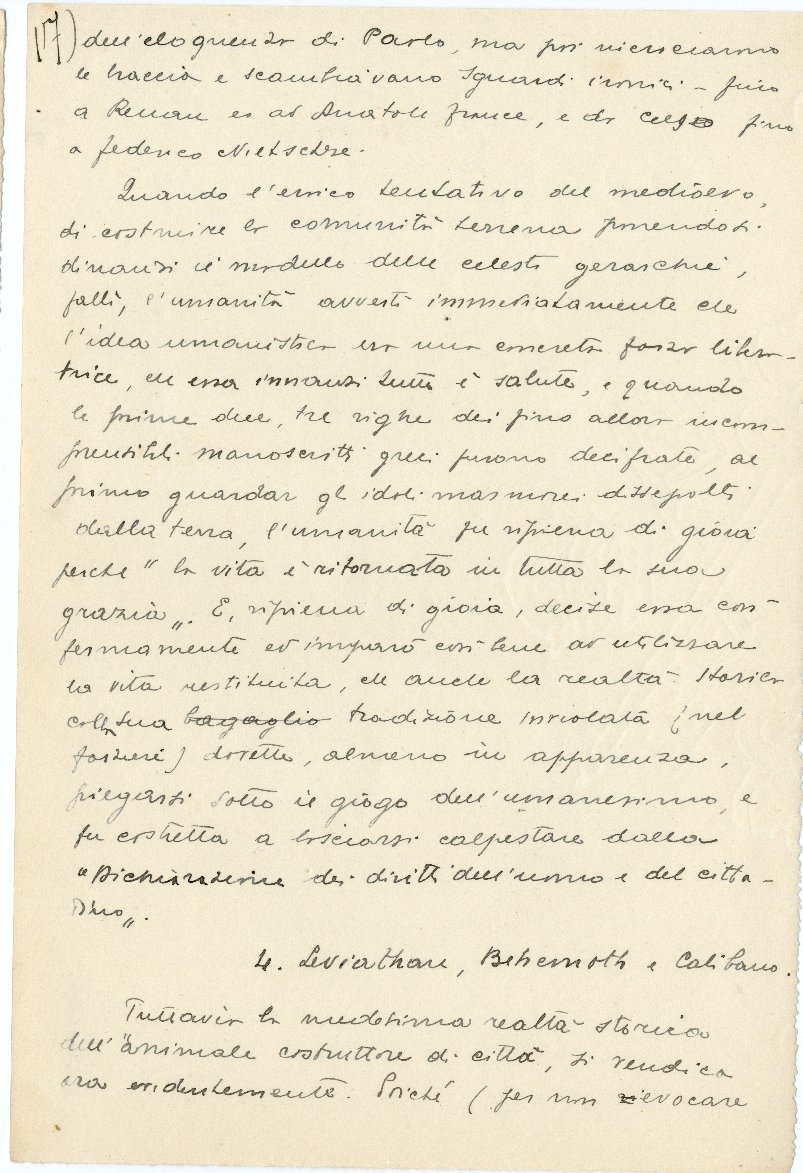 17) dell'eloquenza di Paolo, ma poi incrociarono
le braccia e scambiavano sguardi ironici – fino
a Renan ed ad Anatole France, e da Celso fino
a Federico Nietzsche.
Quando l'eroico tentativo del medioevo,
di costruire la comunità terrena ponendosi
dinanzi il modello delle celesti gerarchie,
fallì, l'umanità avvertì immediatamente che
l'idea umanistica era una concreta forza libera-
trice, che essa innanzi tutto è salute, e quando
le prime due, tre righe dei fino allora incom-
prensibili manoscritti greci furono decifrate, al
primo guardar gli idoli marmorei dissepolti
dalla terra, l'umanità fu ripiena di gioia
perché "la vita è ritornata in tutta la sua
grazia„. E, ripiena di gioia, decise essa così
fermamente ed imparò così bene ad utilizzare
la vita restituita, che anche la realtà storica
colla sua bagaglio tradizione inviolata (nel
forzieri) dovette, almeno in apparenza,
piegarsi sotto il giogo dell'umanesimo, e
fu costretta a lasciarsi calpestare dalla
"Dichiarazione dei diritti dell'uomo e del citta-
dino„.
4. Leviathan, Behemoth e Calibano.
Tuttavia la medesima realtà storica
dell'"animale costruttore di città, si vendica
ora evidentemente. Poiché (per non rievocare